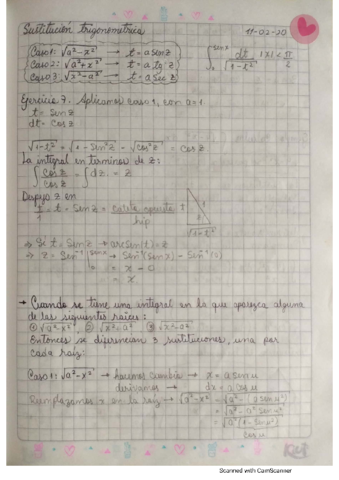 Sustitución trigonométrica
11-02-20
Caso 1: √a²-x² → t = a Sen z
Caso 2: √a²+x² → t = a tg z
Caso 3: √x²-a² → t = a Sec z
∫₀^(sen x) dt/√1-t² |x| < π/2
Ejercicio 7. Aplicamos caso 1, con a=1
t = Sen z
dt = Cos z
√1-t² = √1-Sen²z = √cos²z = Cos z
La integral en términos de z:
∫ Cos z/Cos z = ∫ dz = z
Despejo z en
t/1 = t = Sen z = cateto opuesto/hip
√1-t²
⇒ Si t = Sen z → arcsen(t) = z
⇒ z = Sen⁻¹ |₀^(sen x) → Sen⁻¹(Sen x) - Sen⁻¹(0)
= x - 0
= x
→ Cuando se tiene una integral en la que aparezca alguna
de las siguientes raíces:
① √a²-x², ② √x²-a² ③ √x²+a²
Entonces se diferencian 3 sustituciones, una por
cada raíz:
Caso 1: √a²-x² → hacemos cambio → x = a sen u
derivamos → dx = a cos u
Reemplazamos x en la raíz → √a²-x² = √a²-(a sen u)²
= √a²-a² sen²u
= √a²(1-Sen²u)
cos u
Scanned with CamScanner